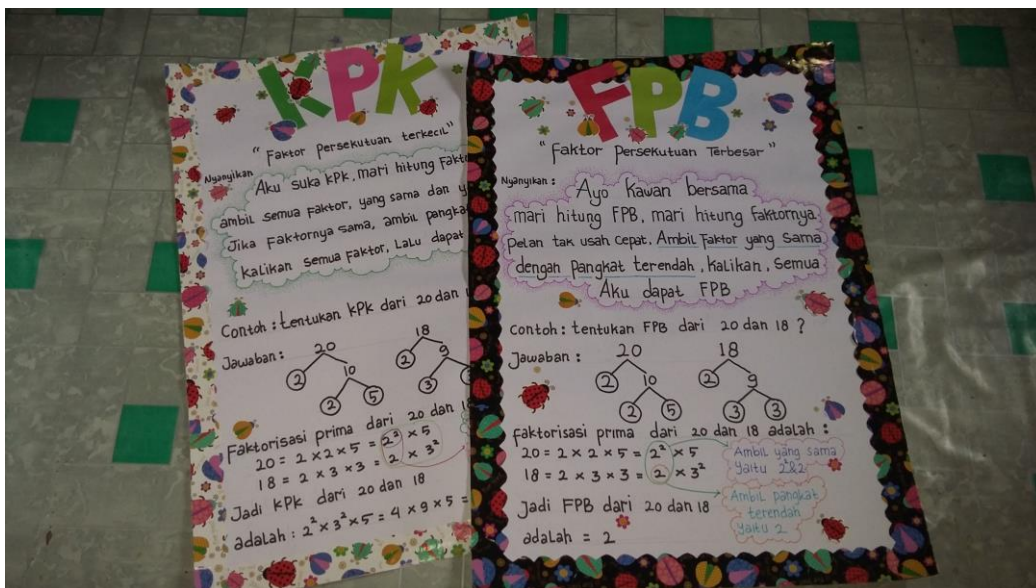 KPK
"Faktor Persekutuan terkecil"
Nyanyikan
Aku suka KPK, mari hitung Fakto
ambil semua Faktor, yang sama dan y
Jika Faktornya sama, ambil pangka
Kalikan semua Faktor, Lalu dapat
Contoh : tentukan KPK dari 20 dan 1
Jawaban :
20
2 10
2 5
18
2 9
3
Faktorisasi prima dari 20 dan 1
20 = 2 × 2 × 5 = 2² × 5
18 = 2 × 3 × 3 = 2 × 3²
Jadi KPK dari 20 dan 18
adalah : 2² × 3² × 5 = 4 × 9 × 5 =
FPB
"Faktor Persekutuan Terbesar"
Nyanyikan :
Ayo Kawan bersama
mari hitung FPB, mari hitung faktornya
Pelan tak usah cepat. Ambil Faktor yang sama
dengan pangkat terendah, Kalikan, Semua
Aku dapat FPB
Contoh : tentukan FPB dari 20 dan 18 ?
Jawaban :
20 18
2 10 2 9
2 5 3 3
faktorisasi prima dari 20 dan 18 adalah :
20 = 2 × 2 × 5 = 2² × 5
18 = 2 × 3 × 3 = 2 × 3²
Ambil yang sama
yaitu 2²&2
Ambil pangkat
terendah
yaitu 2
Jadi FPB dari 20 dan 18
adalah = 2